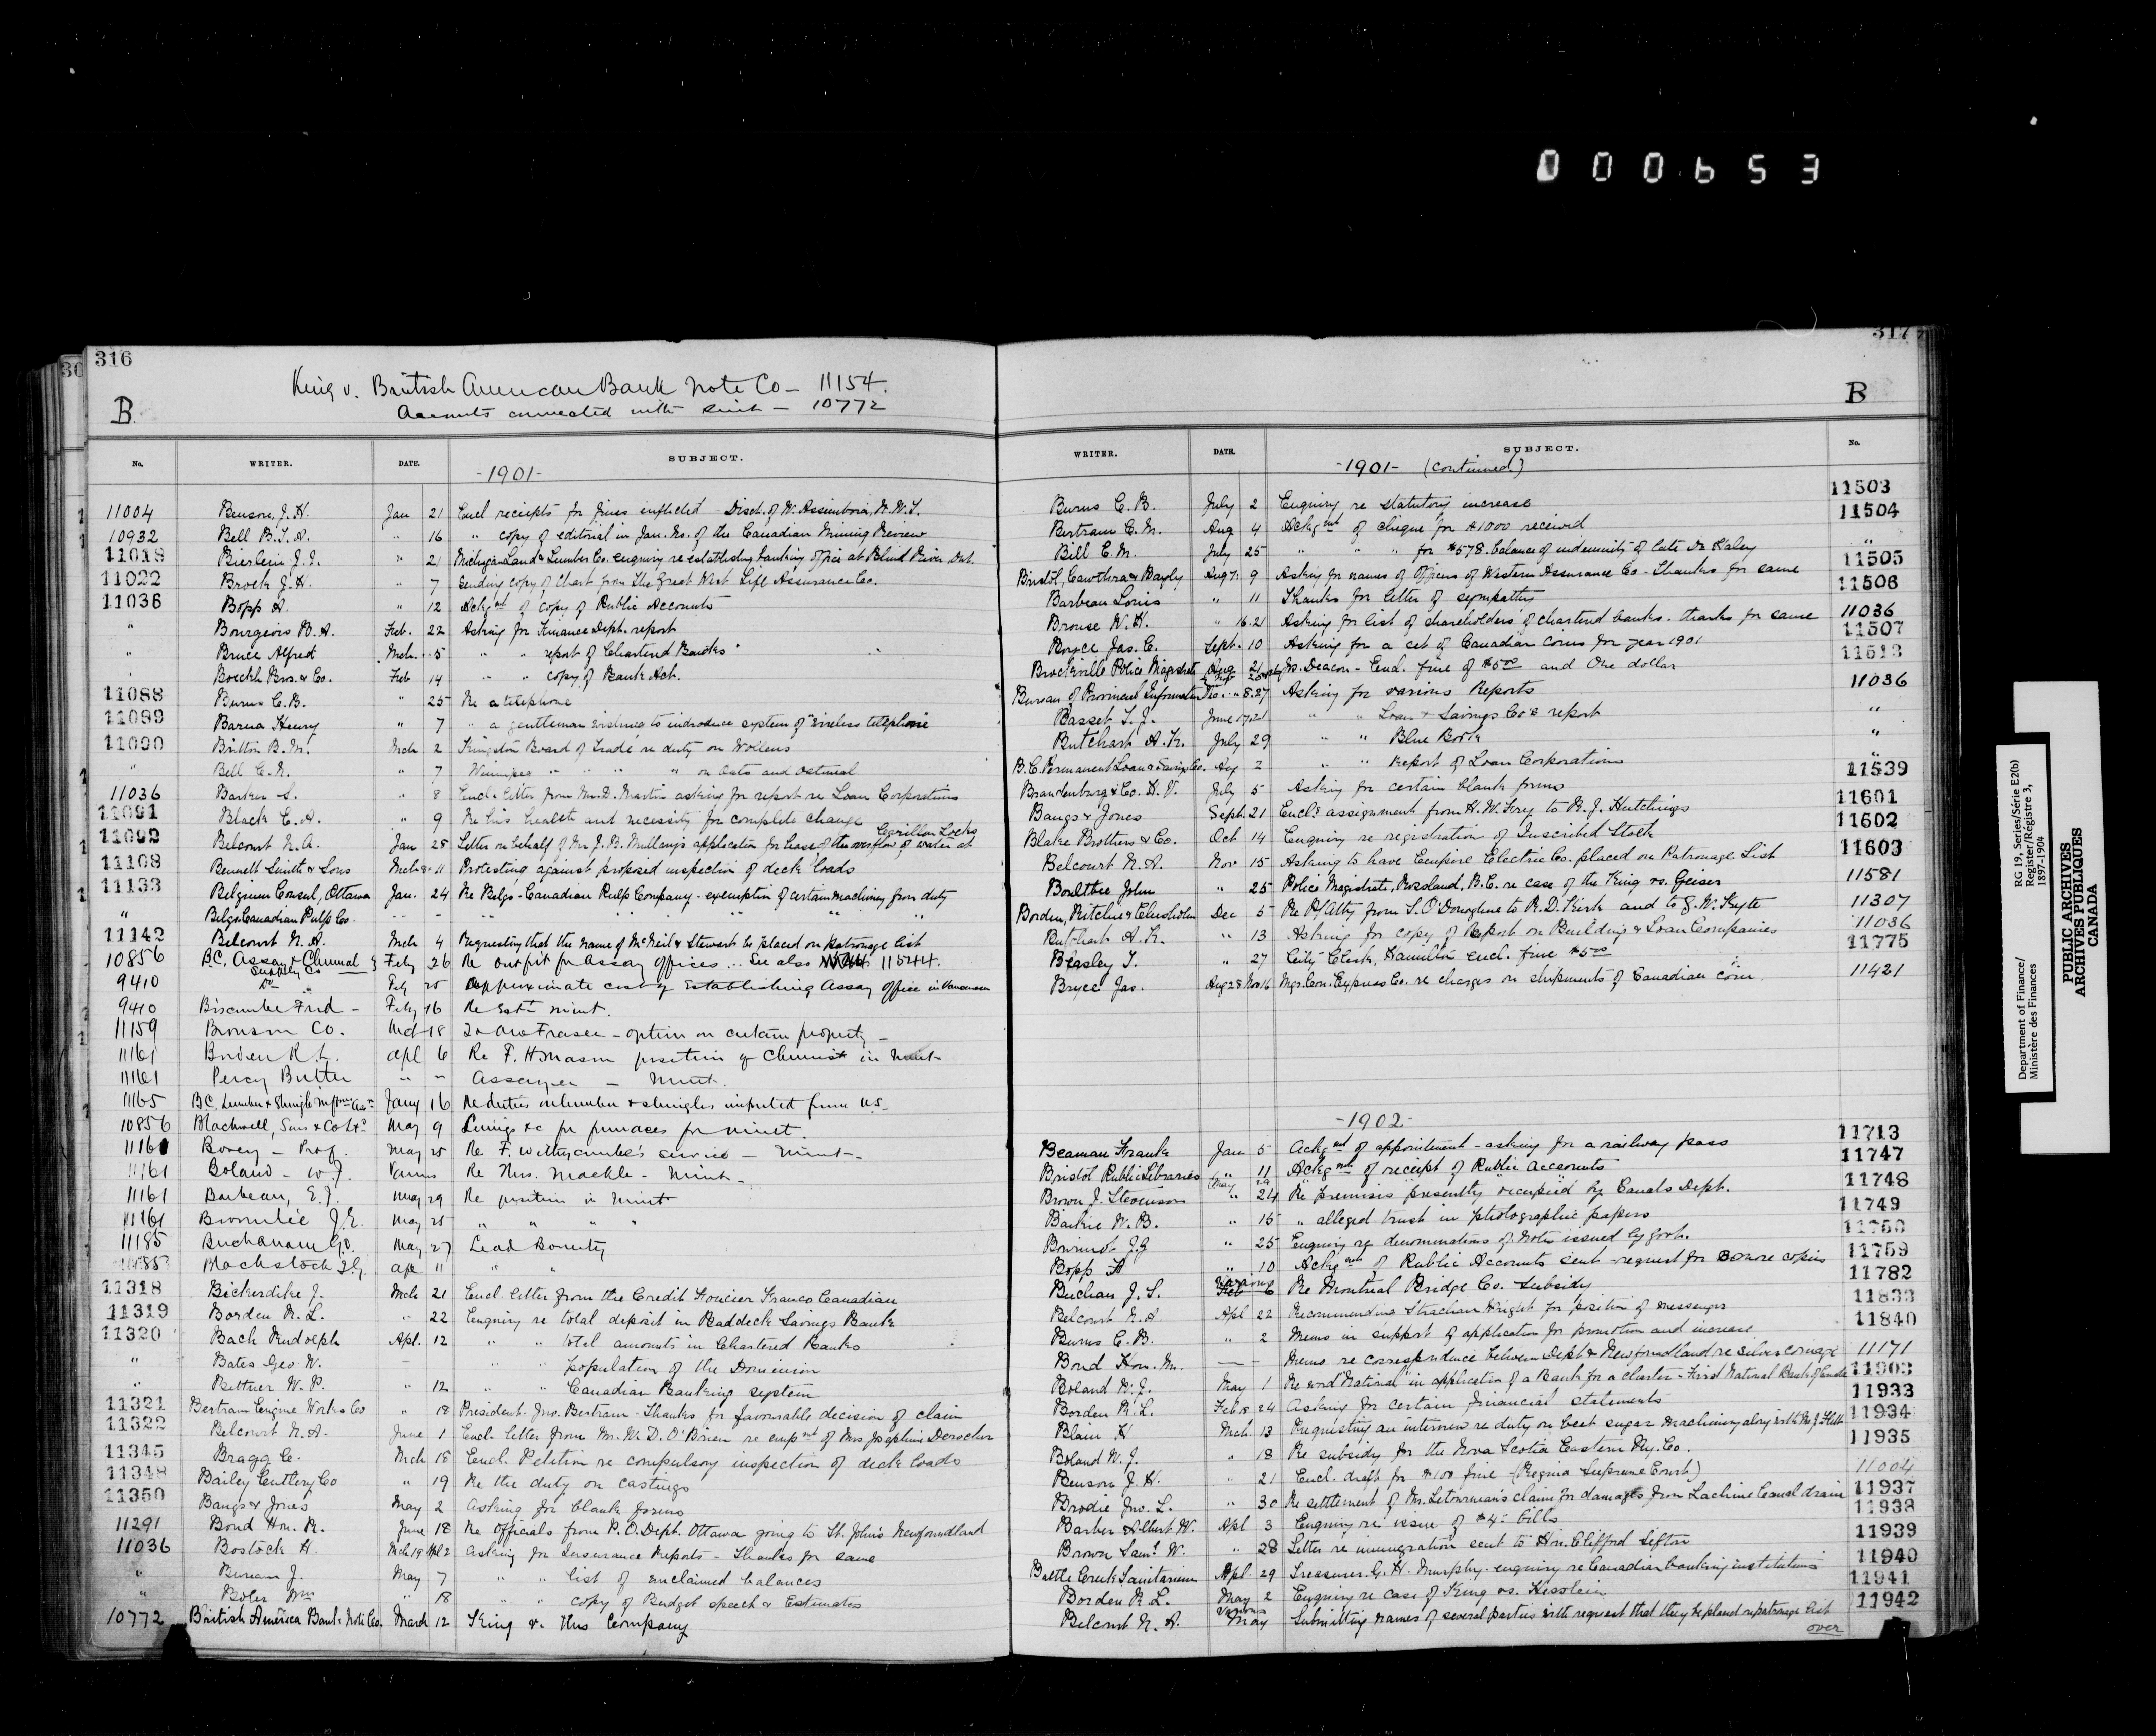 0 0 0 6 5 3
316
King v. British American Bank Note Co — 11154.
Accounts connected with suit — 10772
B.
No. WRITER. DATE. SUBJECT.
-1901-
11004 Benson, J. H. Jan 21 Encl receipts for fines inflicted - Disct. of W. Assiniboia, N.W.T.
10932 Bell B.T.A. " 16 " copy of editorial in Jan. No. of the Canadian Mining Review
11018 Bierlein J.J. " 21 Michigan Land & Lumber Co. enquiry re establishing banking office at Blind River Ont.
11022 Brock J.H. " 7 Sending copy of Chart from The Great West Life Assurance Co.
11036 Bopp A. " 12 Ackgmt of copy of Public Accounts
" Bourgeois B.A. Feb. 22 Asking for Finance Dept. report
" Bruce Alfred Mch. 5 " " report of Chartered Banks
" Boeckh Bros. & Co. Feb 14 " " copy of Bank Act.
11088 Burns C.B. " 25 Re a telephone
11089 Barna Henry " 7 " a gentleman wishing to introduce system of "wireless telephone
11090 Britton B.M. Mch 2 Kingston Board of Trade re duty on Wollens
" Bell C.N. " 7 Winnipeg " " " " on Oats and Oatmeal
11036 Barker S. " 8 Encl. letter from Mr. D. Martin asking for report re Loan Corporations
11091 Black C.A. " 9 Re his health and necessity for complete change
11092 Belcourt N.A. Jan 28 Letter on behalf of Mr J.B. Mullany's application for lease of the overflow of water at Carillon Locks
11108 Bennett Smith & Sons Mch 8 & 11 Protesting against proposed inspection of deck loads
11133 Belgium Consul, Ottawa Jan. 24 Re Belgo-Canadian Pulp Company - exemption of certain machinery from duty
" Belgo Canadian Pulp Co. " " " " " " "
11142 Belcourt N.A. Mch 4 Requesting that the name of McNeil & Stewart be placed on patronage list
10856 B.C. Assay & Chemical Supply Co Feby 26 Re outfit for assay offices ... See also 11544.
9410 Do " Feby 25 Approximate cost of Establishing Assay Office in Vancouver
9410 Biscumbe Fred - Feby 16 Re Estt mint.
11159 Bronson Co. Mch 18 To A W Fraser - option on certain property -
11161 Borden R.L. apl 6 Re F. H Mason position of Chemist in Mint
11161 Percy Butler " " Assayer - Mint.
11165 B.C. Lumber & Shingle Mnftrs Assn Jany 16 Re duties on lumber & shingles imported from U.S.
10856 Blackwell, Sons & Co Ltd May 9 Linings &c for furnaces for mint.
11161 Bovey - Prof. May 25 Re F. Withycombe's service - Mint -
11161 Boland - W.J. Various Re Mrs. Mackle - Mint -
11161 Barbeau, E.J. May 29 Re position in Mint
11161 Bromilie J.E. May 25 " " " "
11185 Buchanan G.O. May 27 Lead Bounty
Blackstock T.G. apl 11 " "
11318 Bickerdike J. Mch 21 Encl. letter from the Credit Foncier Franco Canadian
11319 Borden R.L. " 22 Enquiry re total deposit in Baddeck Savings Bank
11320 Bach Rudolph Apl. 12 " " total amounts in Chartered Banks
" Bates Geo. W. — " " population of the Dominion
" Bittner W.P. " 12 " " Canadian Banking system
11321 Bertram Engine Works Co " 18 President Jno. Bertram - Thanks for favourable decision of claim
11322 Belcourt N.A. June 1 Encl. letter from Mr. W.D. O'Brien re empt of Mrs Josephine Derocher
11345 Bragg C. Mch 18 Encl. Petition re compulsory inspection of deck loads
11348 Bailey Cutlery Co " 19 Re the duty on castings
11350 Bangs & Jones May 2 Asking for blank forms
11291 Bond Hon. R. June 18 Re Officials from P.O. Dept. Ottawa going to St. John's Newfoundland
11036 Bostock H. Mch 19 Apl 2 Asking for Insurance Reports - Thanks for same
" Burian J. May 7 " " list of unclaimed balances
" Boler Wm " 18 " " copy of Budget speech & Estimates
10772 British America Bank Note Co. March 12 King v. this Company
317
B
WRITER. DATE. SUBJECT. No.
-1901- (continued)
Burns C.B. July 2 Enquiry re statutory increase 11503
Bertram C.M. Aug 4 Ackgmt of cheque for $1000 received 11504
Bill E.M. July 25 " " " for $578. balance of indemnity of late Dr Haley "
Bristol, Cawthra & Bayly Aug 7. 9 Asking for names of Officers of Western Assurance Co - Thanks for same 11505
Barbeau Louis " 11 Thanks for letter of sympathy 11506
Brouse W.H. " 16.21 Asking for list of shareholders of chartered banks. thanks for same 11036
Boyce Jas. C. Sept. 10 Asking for a set of Canadian coins for year 1901 11507
Brockville Police Magistrate Aug. 21 Deacon - Encl. fine of $5.00 and One dollar 11513
Bureau of Provincial Information Dec. " 8.27 Asking for various Reports 11036
Basset T.J. June 17.21 " " Loan & Savings Co's report "
Butchart A.K. July 29 " " Blue Book "
B.C. Permanent Loan & Savings Co. Aug 2 " " Report of Loan Corporations "
Brandenburg & Co. H.V. July 5 Asking for certain blank forms 11539
Bangs & Jones Sept. 21 Encl. assignment from H.W. Frey to R.J. Hutchings 11601
Blake Brothers & Co. Oct 14 Enquiry re registration of Inscribed Stock 11602
Belcourt N.A. Nov 15 Asking to have Empire Electric Co. placed on Patronage List 11603
Boultbee John " 25 Police Magistrate, Rossland, B.C. re case of the King vs. Geiser 11581
Borden, Ritchie & Chisholm Dec 5 Re P/Atty from S. O'Donoghue to R.D. Kirk and to G.W. Kyte 11307
Butchart A.K. " 13 Asking for copy of Report on Building & Loan Companies 11036
Beasley T. " 27 City Clerk, Hamilton encl. fine $5.00 11775
Bryce Jas. Aug 28 Nov 16 Mgr. Can. Express Co. re charges on shipments of Canadian coin 11421
-1902-
Beaman Frank Jan 5 Ackgmt of appointment - asking for a railway pass 11713
Bristol Public Libraries " 11 Ackgmt of receipt of Public Accounts 11747
Brown J. Stevenson " 24 Re premises presently occupied by Canals Dept. 11748
Baikie W.B. " 16 " alleged trust in photographic papers 11749
Brivinot J.G " 25 Enquiry re denominations of Notes issued by Govt. 11750
Bopp A " 10 Ackgmt of Public Accounts sent - request for 3 more copies 11759
Buchan J.S. Various Feb 6 Re Montreal Bridge Co. Subsidy 11782
Belcourt N.A Apl 22 Recommending Strachan Wright for position of messenger 11833
Burns C.B. " 2 Memo in support of application for promotion and increase 11840
Bond Hon. R. — Memo re correspondence between Dept & Newfoundland re silver coinage 11171
Boland W.J. May 1 Re word "National" in application of a Bank for a charter - First National Bank of Canada 11903
Borden R.L. Feb 18 24 Asking for certain financial statements 11933
Blain R Mch 13 Requesting an interview re duty on beet sugar machinery along with Mr J. Flett 11934
Boland W.J. " 18 Re subsidy for the Nova Scotia Eastern Ry. Co. 11935
Benson J.H. " 21 Encl. draft for $100 fine - (Regina Supreme Court) 11004
Brodie Jno. L. " 30 Re settlement of Mr. Letourneau's claim for damages from Lachine Canal drain 11937
Barber Albert W. Apl 3 Enquiry re issue of $4.- bills 11938
Brown Saml. W. " 28 Letter re immigration sent to Hon. Clifford Sifton 11939
Battle Creek Sanitarium Apl 29 Treasurer G.H. Murphy - enquiry re Canadian banking institutions 11940
Borden R.L. May 2 Enquiry re case of King vs. Hesslein 11941
Belcourt N.A. Various May Submitting names of several parties with request that they be placed on patronage list 11942
over
Department of Finance/
Ministère des Finances
RG 19, Series/Série E2(b)
Register/Régistre 3,
1897-1904
PUBLIC ARCHIVES
ARCHIVES PUBLIQUES
CANADA